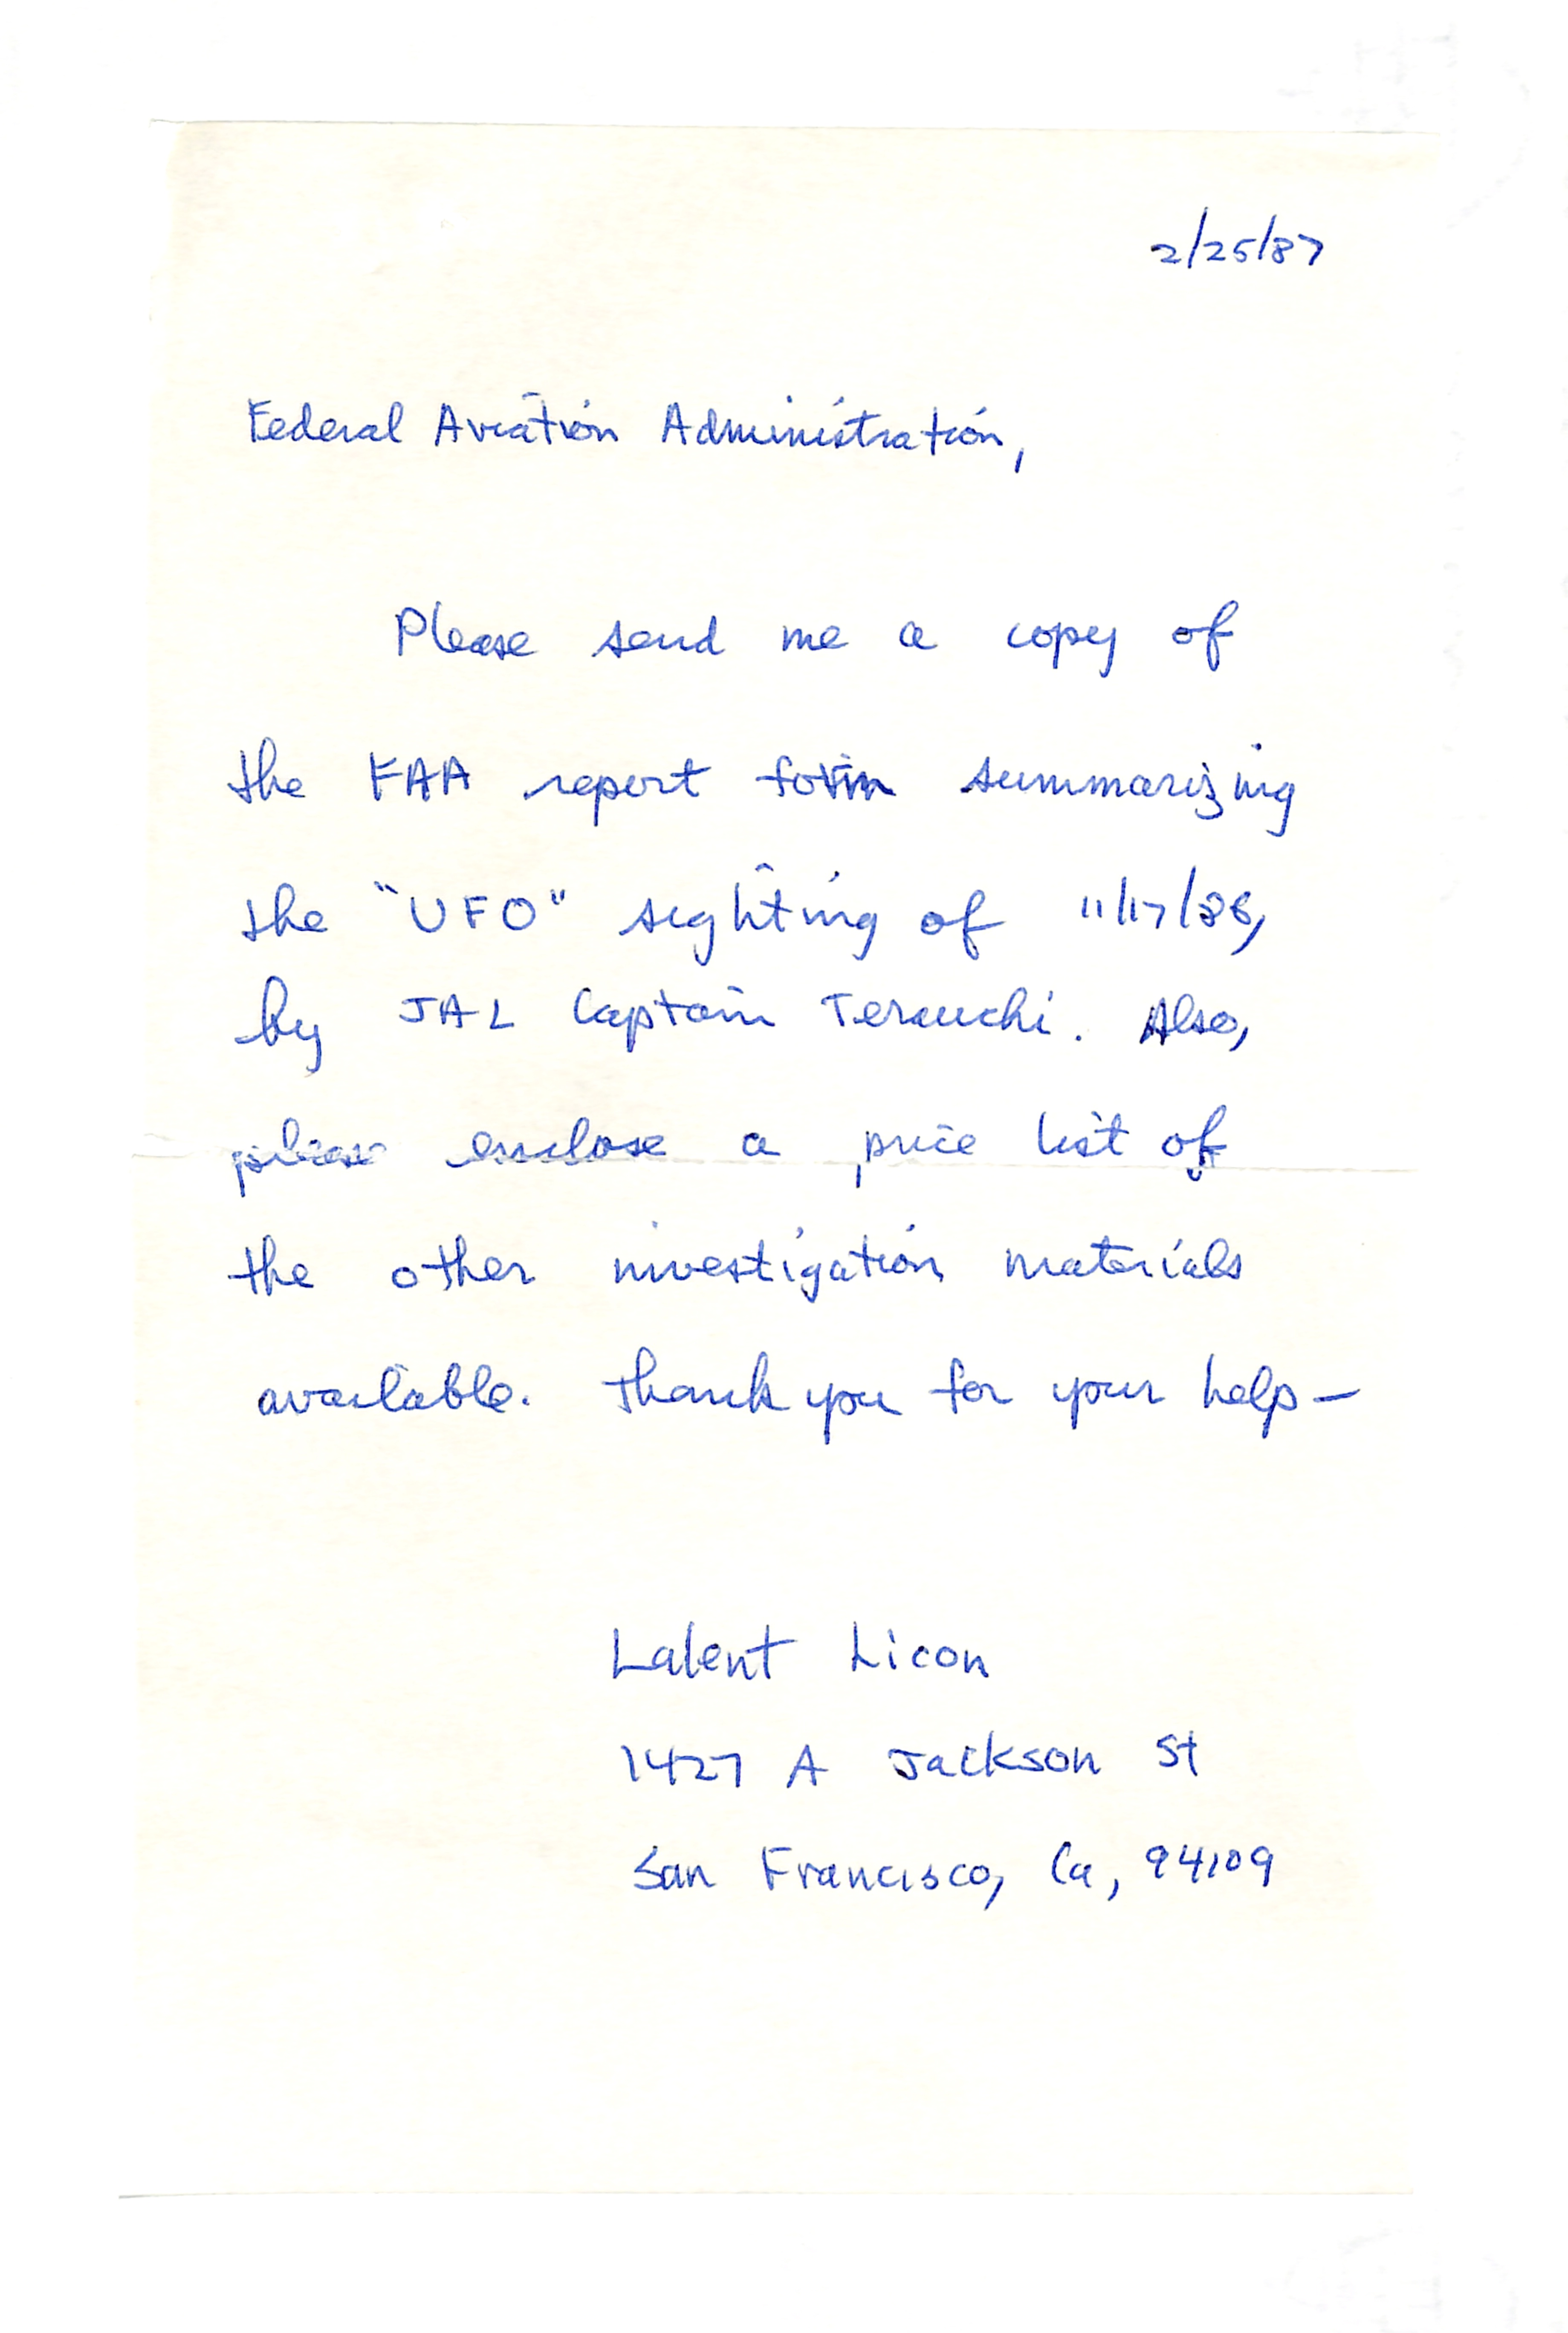 2/25/87
Federal Aviation Administration,
Please send me a copy of
the FAA report form summarizing
the "UFO" sighting of 11/17/86,
by JAL Captain Terauchi. Also,
please enclose a price list of
the other investigation materials
available. Thank you for your help-
Lalent Licon
1427 A Jackson St
San Francisco, Ca, 94109